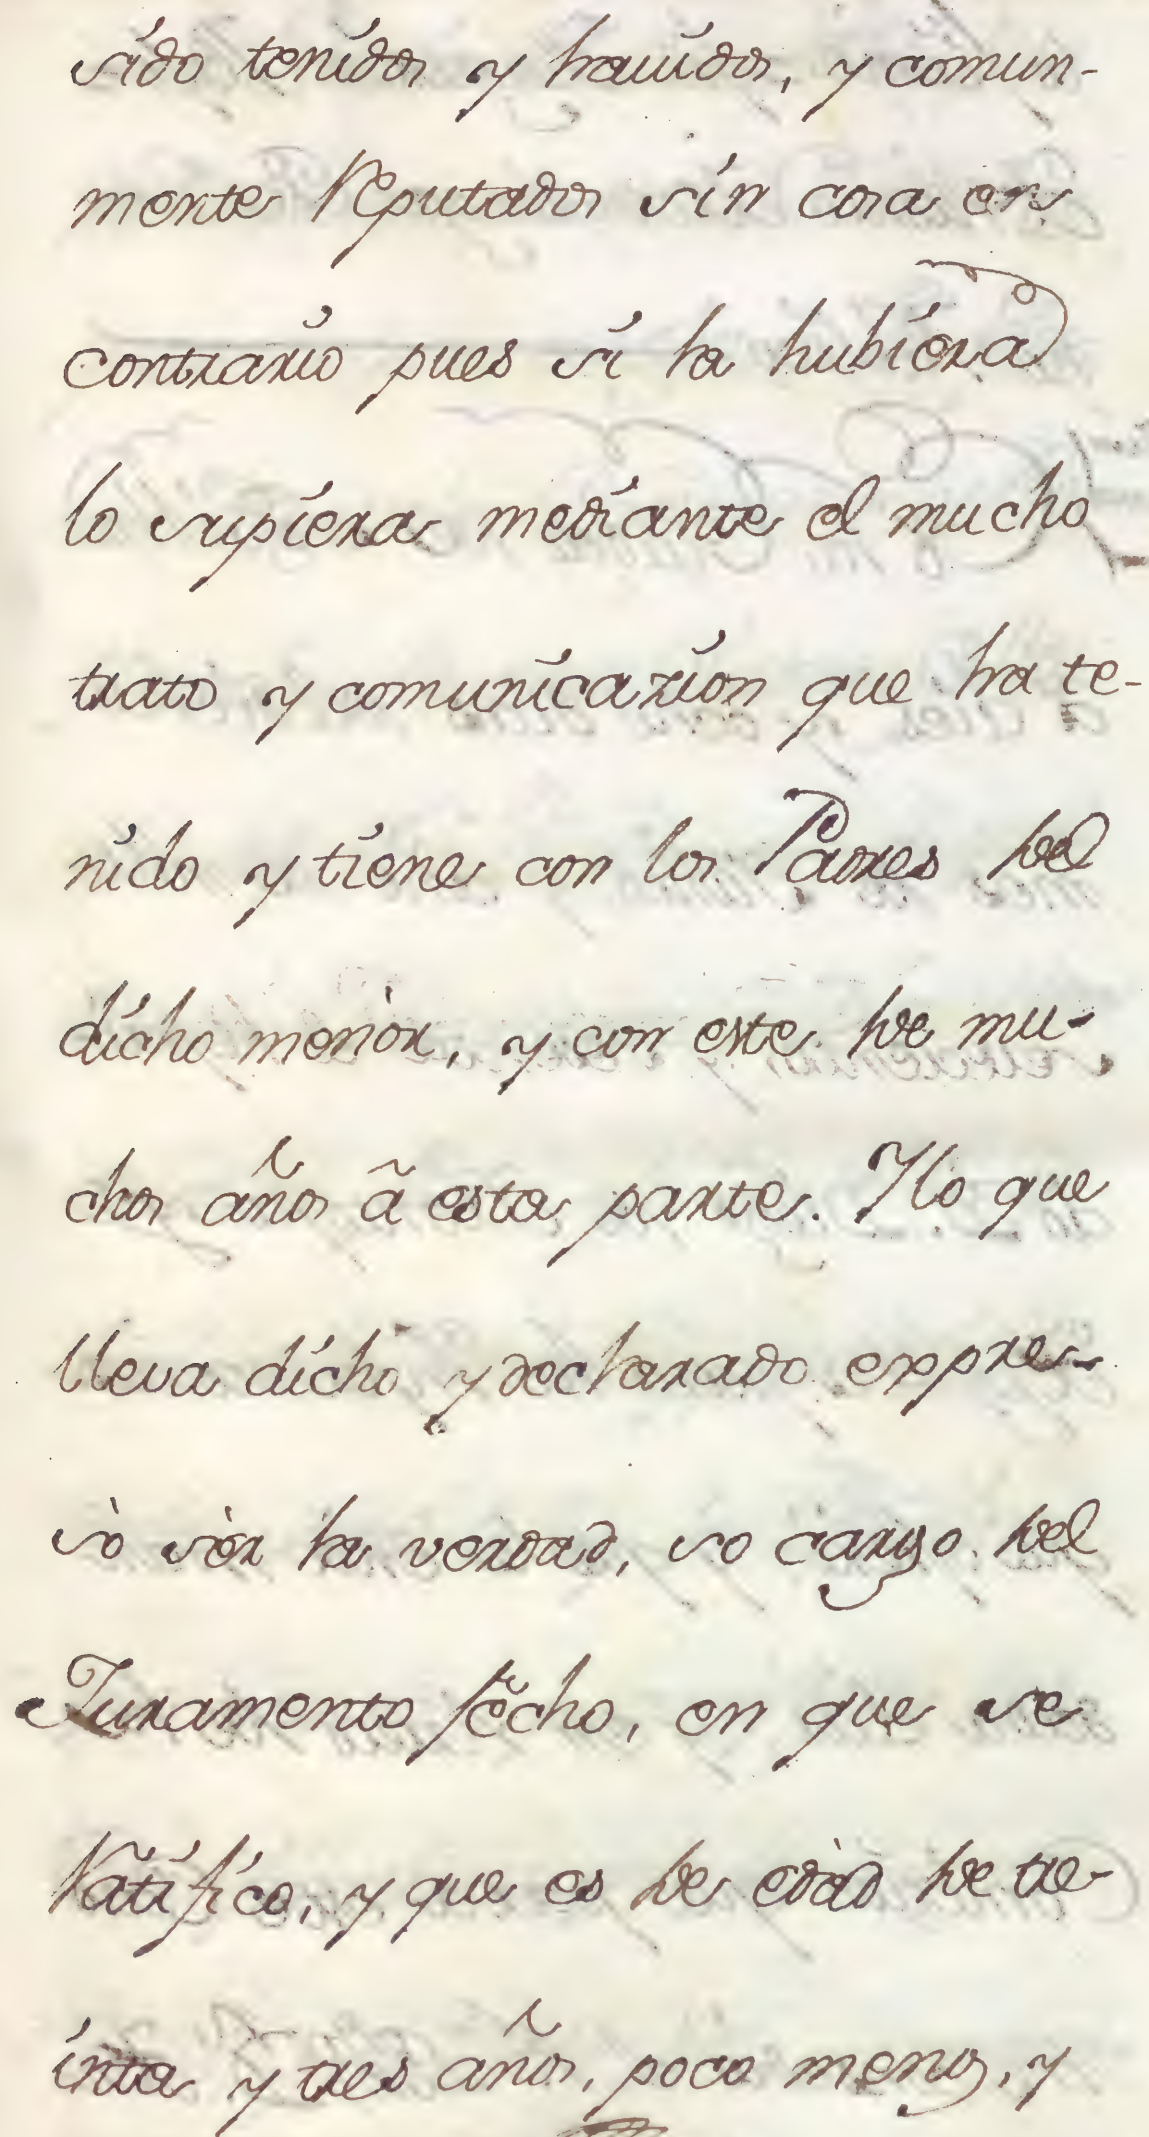 sido tenidos y hauidos, y comun-
mente Reputados sin cosa en
contrario pues si la hubiera
lo supiera mediante el mucho
trato y comunicazion que ha te-
nido y tiene con los Padres del
dicho menòr, y con este de mu-
chos años ã esta parte. Ylo que
lleva dicho y declarado expre-
sò sèr la verdad, so cargo del
Juramento fècho, en que se
Ratifico, y que es de edàd de tre-
inta y tres años, poco menos, y